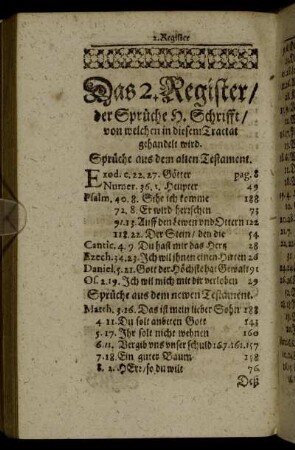 2. Register
Das 2. Register/
der Sprüche H. Schrifft/
von welchen in diesem Tractat
gehandelt wird.
Sprüche aus dem alten Testament.
Exod. c. 22. 27. Götter pag. 8
Numer. 36. 1. Heupter 49
Psalm. 40. 8. Sihe ich komme 188
72. 8. Er wird herrschen 73
91. 13. Auff den Lewen vnd Ottern 122
118. 22. Der Stein/ den die 54
Cantic. 4. 9 Du hast mir das Hertz 28
Ezech. 34. 23. Ich wil ihnen einen Hirten 26
Daniel. 5. 21. Gott der Höchste hat Gewalt 91
Os. 2. 19. Ich wil mich mit dir verloben 29
Sprüche aus dem newen Testament.
Matth. 3. 26. Das ist mein lieber Sohn 188
4. 11. Du solt anbeten Gott 143
5. 17. Ihr solt nicht wehnen 160
6. 11. Vergib vns vnser schuld 167. 161. 157
7. 18. Ein guter Baum 158
8. 2. HErr/ so du wilt 76
Deß